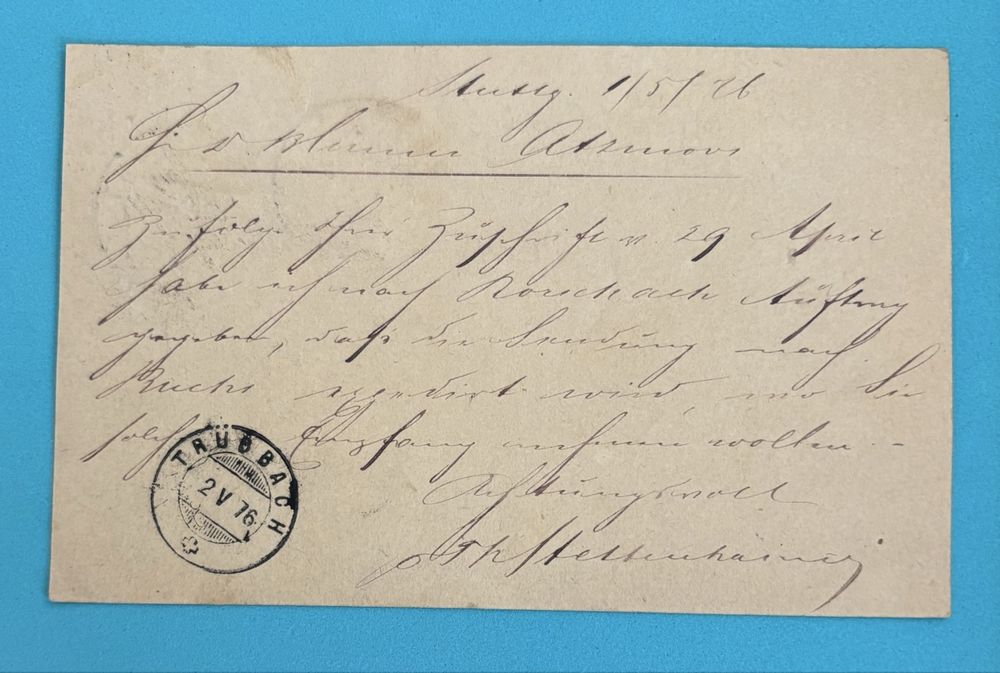 Stuttg. 1/5/76
Zufolge Ihrer Zuschrift v. 29 April
habe ich nach Rorschach Auftrag
gegeben, daß die Sendung nach
Buchs expedirt wird, wo Sie
solche Empfang nehmen wollen.
Achtungsvoll
TRÜBBACH
2 V 76